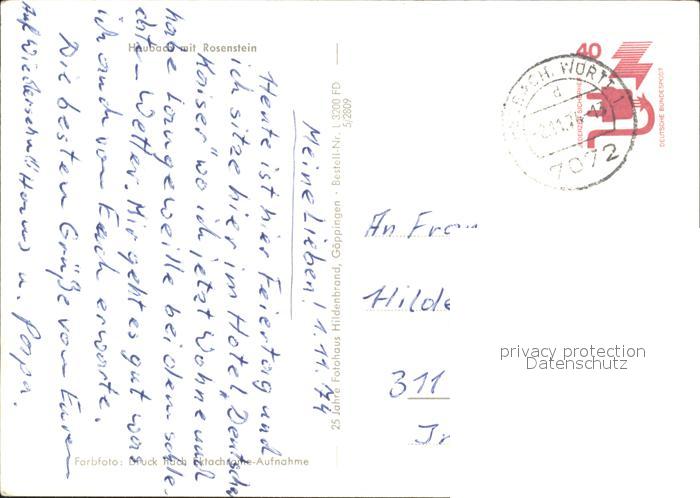 Heubach mit Rosenstein
Meine Lieben! 1.11.74
Heute ist hier Feiertag und
ich sitze hier im Hotel „Deutscher
Kaiser" wo ich jetzt wohne und
habe Langeweile bei dem schle-
chten Wetter. Mir geht es gut was
ich auch von Euch erwarte.
Die besten Grüße von Eurem
Hans u. Papa.
Auf Wiedersehn!!
25 Jahre Fotohaus Hildenbrand, Göppingen · Bestell-Nr. L 3200 FD
5/2809
Farbfoto: Druck nach Ektachrome-Aufnahme
40
JEDERZEIT SICHERHEIT
DEUTSCHE BUNDESPOST
7072
An Frau
Hilde
311
privacy protection
Datenschutz